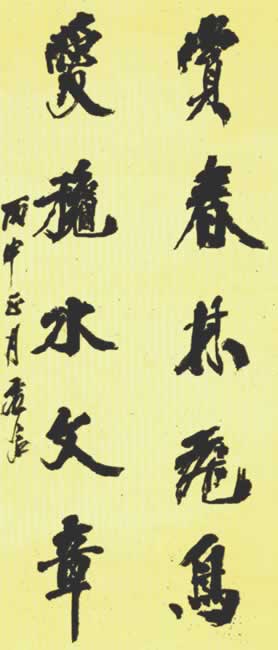 賞春林飛鳥
愛穐水文章
丙申正月